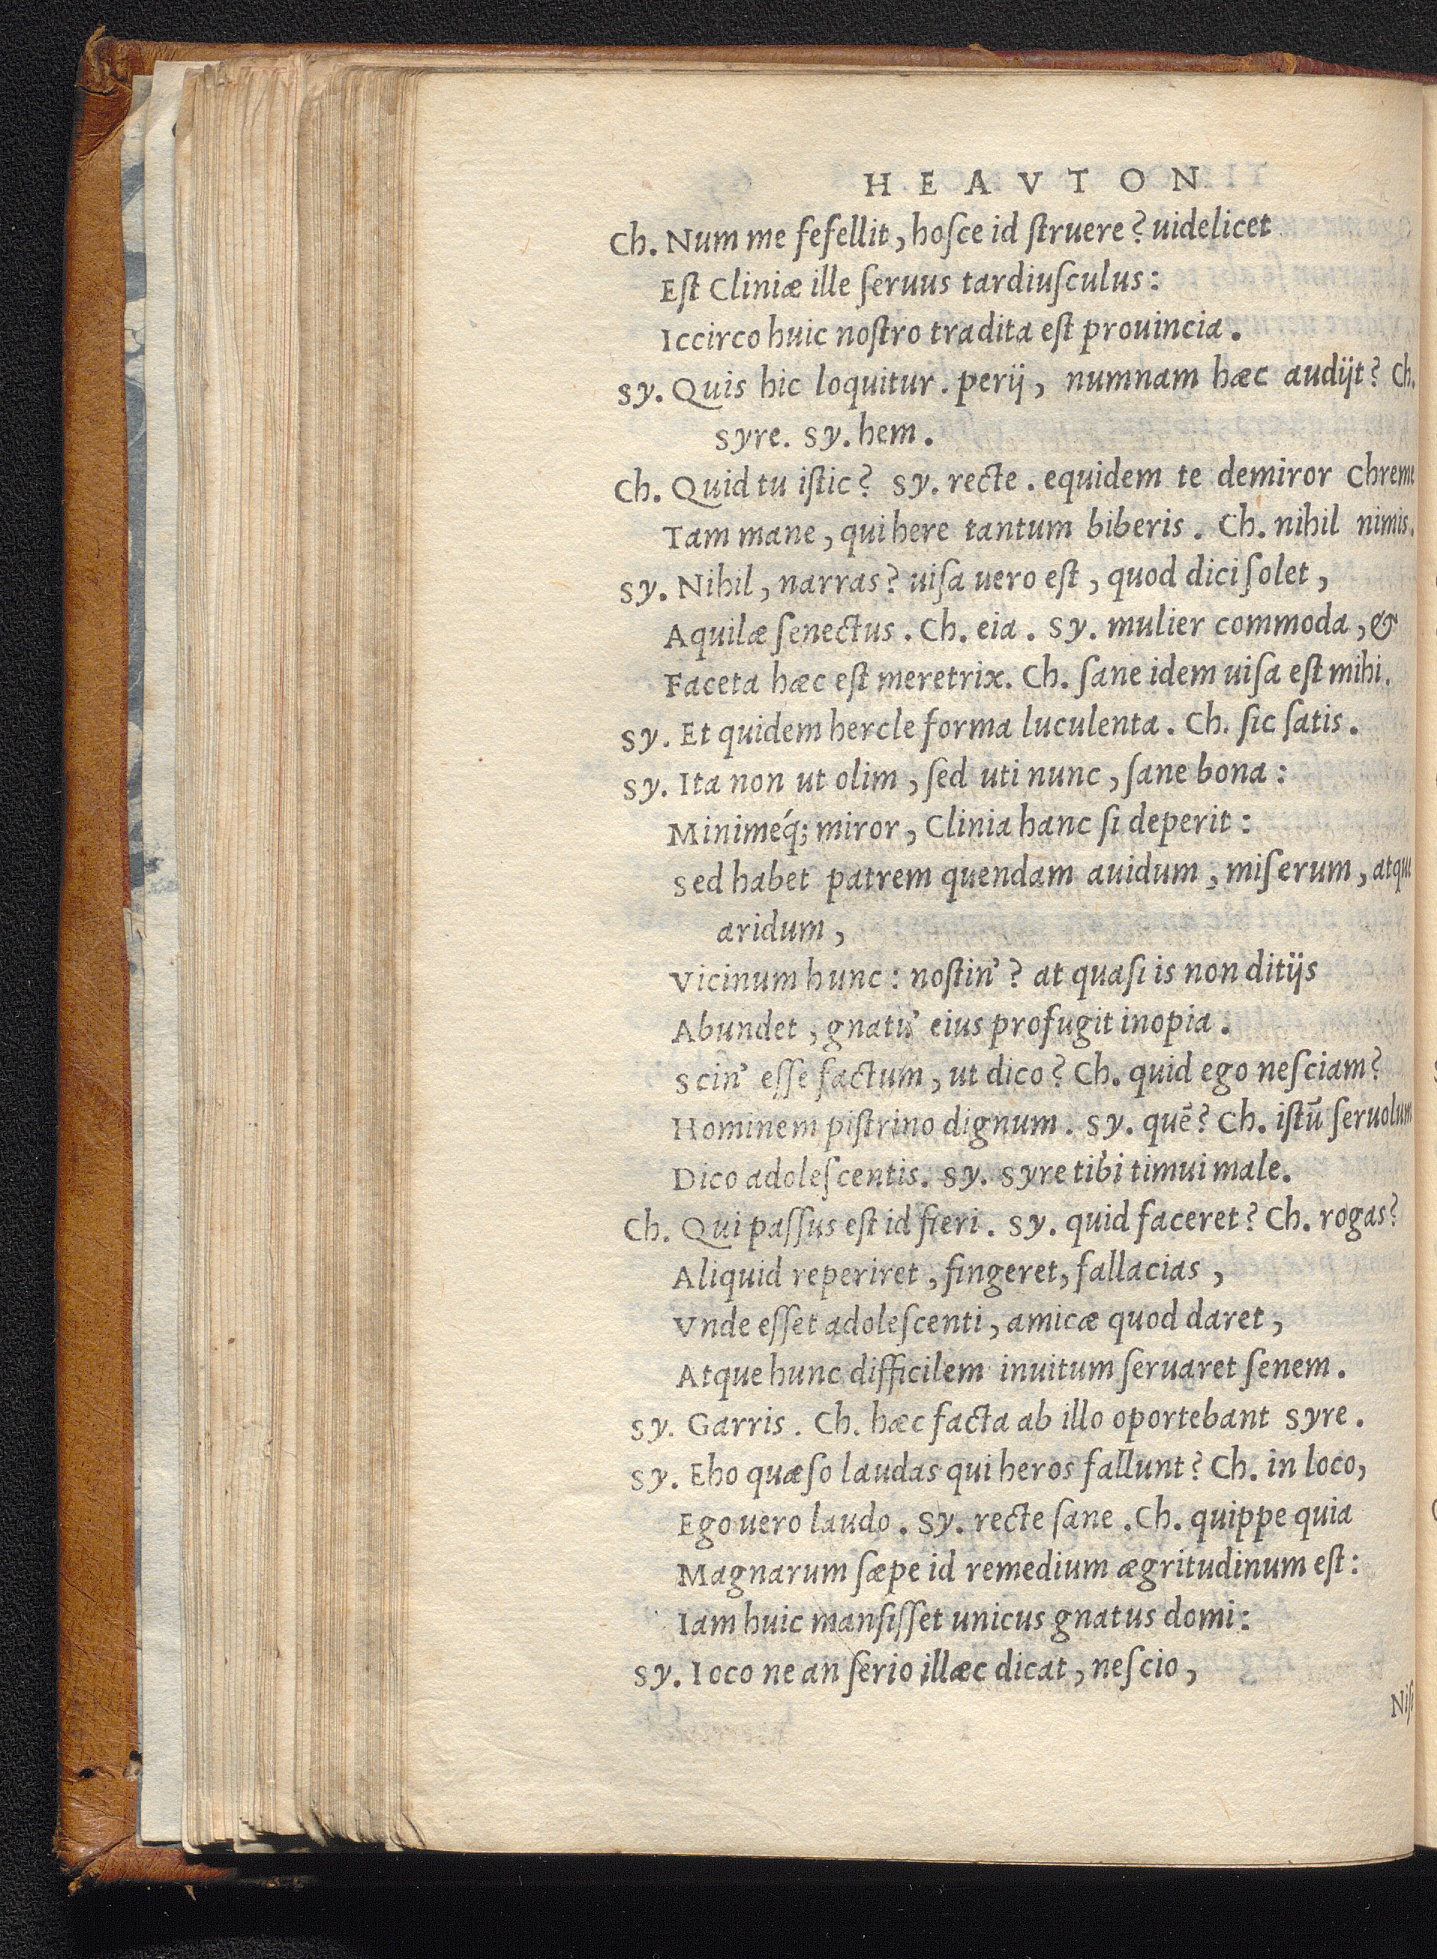 HEAVTON
Ch. Num me fefellit, hoſce id ſtruere? uidelicet
Eſt Cliniæ ille ſeruus tardiuſculus:
Iccirco huic noſtro tradita eſt prouincia.
Sy. Quis hic loquitur. perij, numnam hæc audijt? Ch.
Syre. Sy. hem.
Ch. Quid tu iſtic? Sy. recte. equidem te demiror Chreme
Tam mane, qui here tantum biberis. Ch. nihil nimis.
Sy. Nihil, narras? uiſa uero eſt, quod dici ſolet,
Aquilæ ſenectus. Ch. eia. Sy. mulier commoda, &
Faceta hæc eſt meretrix. Ch. ſane idem uiſa eſt mihi.
Sy. Et quidem hercle forma luculenta. Ch. ſic ſatis.
Sy. Ita non ut olim, ſed uti nunc, ſane bona:
Minimeq́; miror, Clinia hanc ſi deperit:
Sed habet patrem quendam auidum, miſerum, atque
aridum,
Vicinum hunc: noſtin'? at quaſi is non ditijs
Abundet, gnatu' eius profugit inopia.
Scin' eſſe factum, ut dico? Ch. quid ego neſciam?
Hominem piſtrino dignum. Sy. quē? Ch. iſtū ſeruolum
Dico adoleſcentis. Sy. Syre tibi timui male.
Ch. Qui paſſus eſt id fieri. Sy. quid faceret? Ch. rogas?
Aliquid reperiret, fingeret, fallacias,
Vnde eſſet adoleſcenti, amicæ quod daret,
Atque hunc difficilem inuitum ſeruaret ſenem.
Sy. Garris. Ch. hæc facta ab illo oportebant Syre.
Sy. Eho quæſo laudas qui heros fallunt? Ch. in loco,
Ego uero laudo. Sy. recte ſane. Ch. quippe quia
Magnarum ſæpe id remedium ægritudinum eſt:
Iam huic manſiſſet unicus gnatus domi:
Sy. Ioco ne an ſerio illæc dicat, neſcio,
Niſi